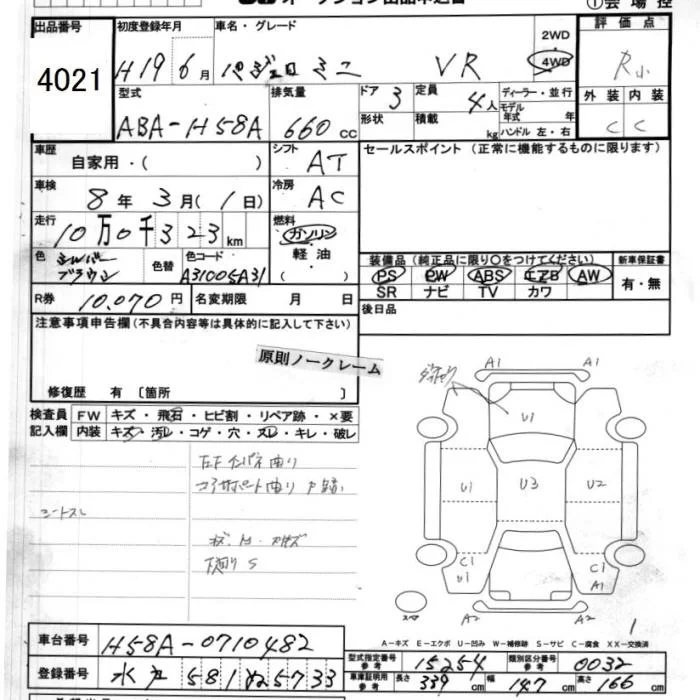 オークション出品申込書
①会場控
出品番号 4021
初度登録年月 H19年6月
車名・グレード パジェロミニ VR
2WD
4WD
評価点 R小
外装 内装
C C
型式 ABA-H58A
排気量 660cc
ドア 3
形状
定員 4人
積載 kg
ディーラー・並行
モデル年式 年
ハンドル 左・右
車歴 自家用・( )
シフト AT
セールスポイント(正常に機能するものに限ります)
車検 8年3月(1日)
冷房 AC
走行 10万0千323km
燃料 ガソリン
軽油
( )
色 シルバー ブラウン
色替
色コード A31005A31
装備品(純正品に限り○をつけてください)
PS PW ABS エアB AW
SR ナビ TV カワ
新車保証書
有・無
R券 10,070円
名変期限 月 日
後日品
注意事項申告欄(不具合内容等は具体的に記入して下さい)
原則ノークレーム
修復歴 有〔箇所 〕
検査員記入欄
FW キズ・飛石・ヒビ割・リペア跡・×要
内装 キズ・汚レ・コゲ・穴・スレ・キレ・破レ
左Fインパネ曲り
コアサポート曲り
シートスレ
下廻りS
A1 A1
U1
U1 U3 U2
C1 U1
C1 A1
スペア
A2 A2
1
A-キズ E-エクボ U-凹み W-補修跡 S-サビ C-腐食 XX-交換済
車台番号 H58A-0710482
登録番号 水戸 581 ぬ 5733
型式指定番号 参考 15254
類別区分番号 参考 0032
車庫証明用 参考 長さ 339cm 幅 147cm 高さ 166cm